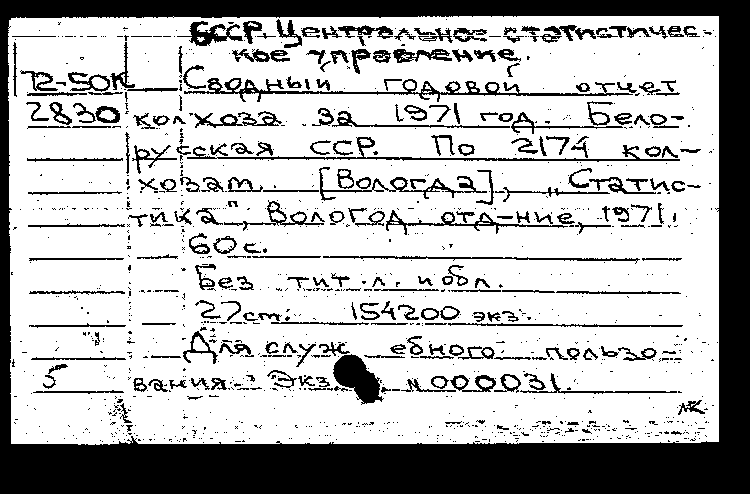 БССР. Центральное статистичес-
кое управление.
72-50К Сводный годовой отчет
2830 колхоза за 1971 год. Бело-
русская ССР. По 2174 кол-
хозам. [Вологда], „Статис-
тика", Вологод. отд-ние, 1971.
60 с.
Без тит. л. и обл.
27 см. 154200 экз.
Для служебного пользо-
5 вания. Экз. N 000031.